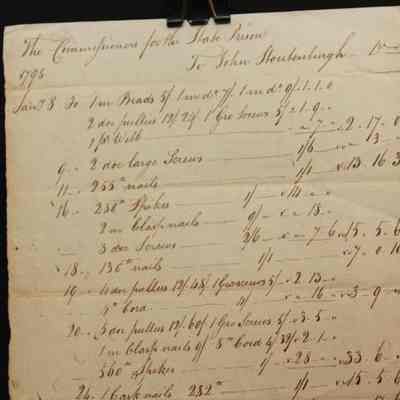 The Commissioners for the State Prison
To John Stoutenburgh Dr
1796
Jan'y 8 To 1 m Brads 5/ 1 m do 7/ 1 m do 9/ 1.1.0
2 doz pullies 12/ 24/ 1 Gro Screws 5/ 1.9
1 ps Webb 7 2.17.0
9 2 doz large Screws 1/6 3
11 255 lb nails 1/1 13.16.3
16 280 lb Spikes 1/ 14
2 m Clasp nails 9/ 18
3 doz Screws 2/6 7.6 15.5.6
18 136 lb nails 1/1 7
19 4 doz pullies 12/ 48/ 1 Gro screws 5/ 2.13
Cord 16 3.9
20 5 doz pullies 12/ 60/ 1 Gro Screws 5/ 3.5
1 m Clasp nails 9/ 8 lb Cord 4/ 32/ 2.1
560 lb Spikes 1/ 28 33.6
24 1 Cask nails 282 lb 1/1 15.5.6